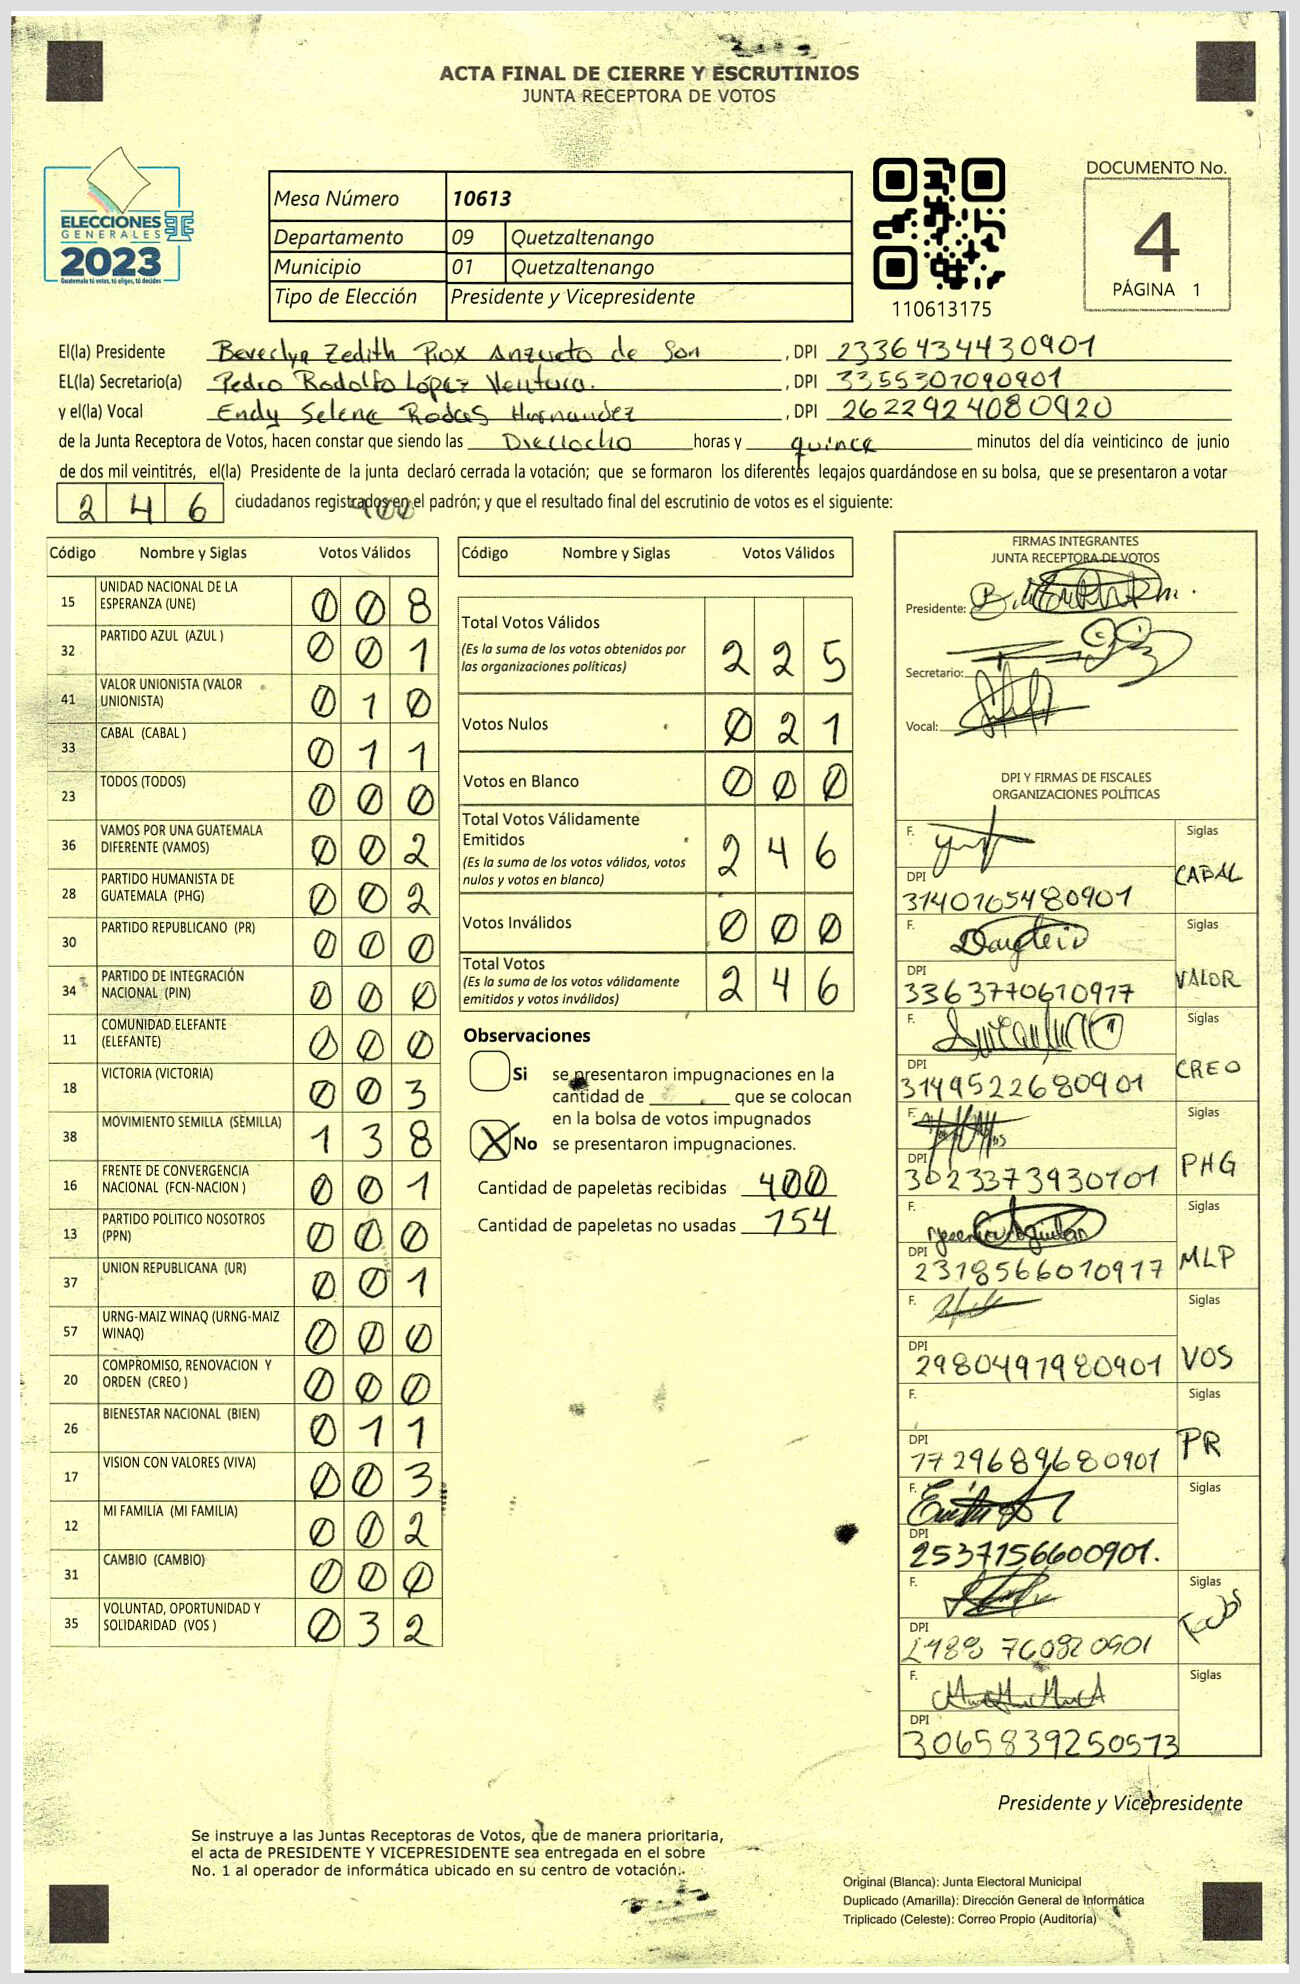 ACTA FINAL DE CIERRE Y ESCRUTINIOS
JUNTA RECEPTORA DE VOTOS
ELECCIONES
GENERALES
2023
Guatemala tú votas, tú eliges, tú decides
Mesa Número 10613
Departamento 09 Quetzaltenango
Municipio 01 Quetzaltenango
Tipo de Elección Presidente y Vicepresidente
110613175
DOCUMENTO No.
4
PÁGINA 1
El(la) Presidente Zedith Anzueto de Son , DPI 2336434430901
EL(la) Secretario(a) Pedro Rodolfo López Ventura. , DPI 3355307090901
y el(la) Vocal Endy Selena Rodas Hernandez , DPI 2622924080920
de la Junta Receptora de Votos, hacen constar que siendo las Dieciocho horas y quince minutos del día veinticinco de junio
de dos mil veintitrés, el(la) Presidente de la junta declaró cerrada la votación; que se formaron los diferentes legajos quardándose en su bolsa, que se presentaron a votar
246 ciudadanos registrados en el padrón; y que el resultado final del escrutinio de votos es el siguiente:
400
Código Nombre y Siglas Votos Válidos
15 UNIDAD NACIONAL DE LA ESPERANZA (UNE) 008
32 PARTIDO AZUL (AZUL ) 001
41 VALOR UNIONISTA (VALOR UNIONISTA) 010
33 CABAL (CABAL ) 011
23 TODOS (TODOS) 000
36 VAMOS POR UNA GUATEMALA DIFERENTE (VAMOS) 002
28 PARTIDO HUMANISTA DE GUATEMALA (PHG) 002
30 PARTIDO REPUBLICANO (PR) 000
34 PARTIDO DE INTEGRACIÓN NACIONAL (PIN) 000
11 COMUNIDAD ELEFANTE (ELEFANTE) 000
18 VICTORIA (VICTORIA) 003
38 MOVIMIENTO SEMILLA (SEMILLA) 138
16 FRENTE DE CONVERGENCIA NACIONAL (FCN-NACION ) 001
13 PARTIDO POLITICO NOSOTROS (PPN) 000
37 UNION REPUBLICANA (UR) 001
57 URNG-MAIZ WINAQ (URNG-MAIZ WINAQ) 000
20 COMPROMISO, RENOVACION Y ORDEN (CREO ) 000
26 BIENESTAR NACIONAL (BIEN) 011
17 VISION CON VALORES (VIVA) 003
12 MI FAMILIA (MI FAMILIA) 002
31 CAMBIO (CAMBIO) 000
35 VOLUNTAD, OPORTUNIDAD Y SOLIDARIDAD (VOS ) 032
Código Nombre y Siglas Votos Válidos
Total Votos Válidos 225
(Es la suma de los votos obtenidos por
las organizaciones políticas)
Votos Nulos 021
Votos en Blanco 000
Total Votos Válidamente
Emitidos 246
(Es la suma de los votos válidos, votos
nulos y votos en blanco)
Votos Inválidos 000
Total Votos 246
(Es la suma de los votos válidamente
emitidos y votos inválidos)
Observaciones
Si se presentaron impugnaciones en la
cantidad de ________ que se colocan
en la bolsa de votos impugnados
X No se presentaron impugnaciones.
Cantidad de papeletas recibidas 400
Cantidad de papeletas no usadas 154
FIRMAS INTEGRANTES
JUNTA RECEPTORA DE VOTOS
Presidente:
Secretario:
Vocal:
DPI Y FIRMAS DE FISCALES
ORGANIZACIONES POLÍTICAS
F. Siglas
DPI CABAL
3140165480901
F. Siglas
DPI VALOR
3363770610917
F. Siglas
DPI CREO
3149522680901
F. Siglas
DPI PHG
3023373930101
F. Siglas
DPI MLP
2318566010917
F. Siglas
DPI VOS
2980497980901
F. Siglas
DPI PR
1729689680901
F. Siglas
DPI
2537156600901.
F. Siglas
DPI Todos
2488760820901
F. Siglas
DPI
3065839250513
Presidente y Vicepresidente
Se instruye a las Juntas Receptoras de Votos, que de manera prioritaria,
el acta de PRESIDENTE Y VICEPRESIDENTE sea entregada en el sobre
No. 1 al operador de informática ubicado en su centro de votación.
Original (Blanca): Junta Electoral Municipal
Duplicado (Amarilla): Dirección General de Informática
Triplicado (Celeste): Correo Propio (Auditoría)